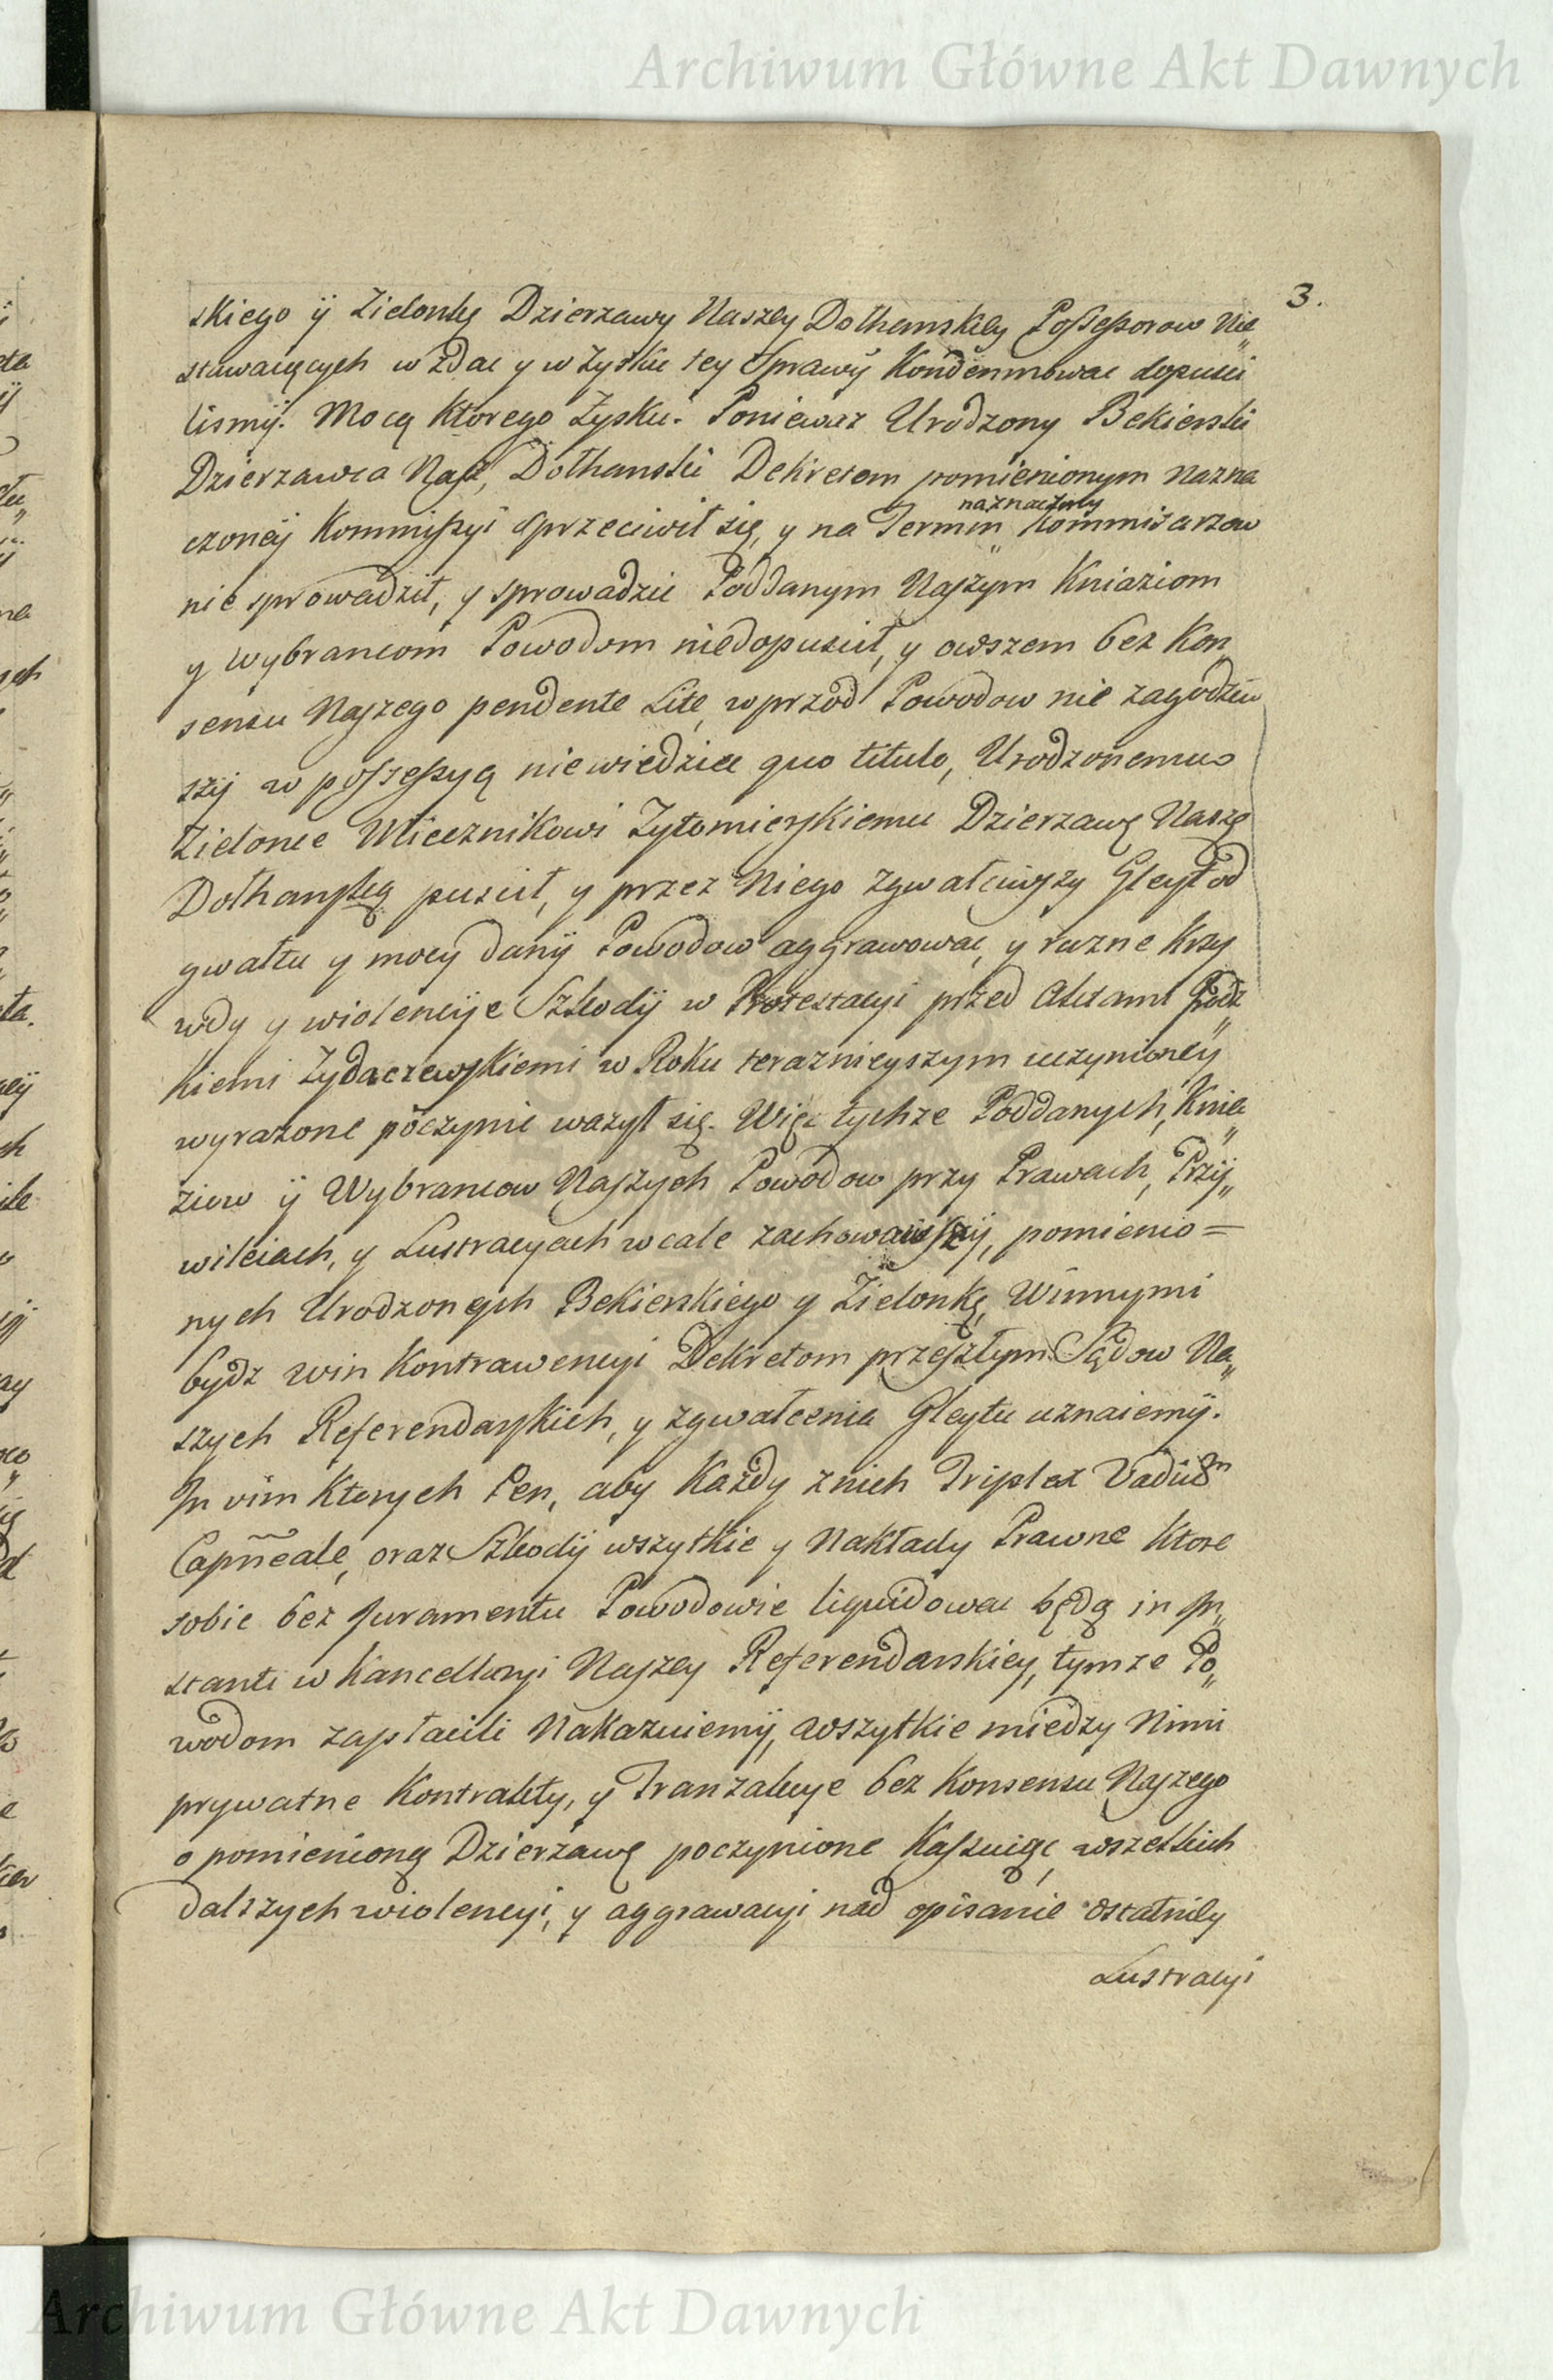 Archiwum Główne Akt Dawnych
3.
skiego ÿ Zielonkę Dzierzawy Naszey Dołhanskiey Possessorow Nie„
stawaiących w Zdac y w Zysku tey Sprawÿ Kondemnowac dopusci
lismÿ. Mocą Ktorego Zysku. Poniewaz Urodzony Bekierski
Dzierzawca Nasz, Dołhanski Dekretem pomienionym Nazna
czoneÿ Kommissyi sprzeciwił się, y na Termin naznaczony Kommisarzow
nie sprowadził, y sprowadzic Poddanym Naszym Kniaziom
y Wybrancom Powodom niedopuscił, y owszem bez Kon„
sensu Naszego pendente Lite, wprzod Powodow nie zagodziw
szÿ w possessyą niewiedziec quo titulo, Urodzonemu
Zielonce Miecznikowi Zytomierskiemu Dzierzawę Naszę
Dołhanską puscił, y przez Niego zgwałciwszy Gleyt od
gwałtu y mocy danÿ Powodow aggrawowac, y rozne Krzy
wdy y wiolencÿe Szkodÿ w Protestacyi przed Aktami Grodz„
kiemi Zydaczewskiemi w Roku teraznieyszym uczynioneÿ
wyrazone poczynic wazył się. Więc tychze Poddanych, Knia„
ziow ÿ Wybrancow Naszych Powodow przy Prawach, Przÿ„
wileiach, y Lustracyach wcale zachowawszÿ, pomienio=
nych Urodzonych Bekierskiego y Zielonkę, Winnymi
bydz win Kontrawencyi Dekretom przeszłym Sądow Na„
szych Referendarskich, y zgwałcenia Gleytu uznaiemÿ.
In vim Ktorych Pen, aby Kazdy znich Triplex Vadium
Capñeale, oraz Szkodÿ wszytkie y Nakłady Prawne Ktore
sobie bez Juramentu Powodowie liquidowac będą in In„
stanti w Kancellaryi Naszey Referendarskiey, tymze Po„
wodom zapłacili Nakazuiemÿ, a wszytkie miedzy Nimi
prywatne Kontrakty, y Tranzakcye bez Konsensu Naszego
o pomienioną Dzierzawę poczynione Kassuiąc, wszelkich
dalszych wiolencyi, y aggrawacyi nad opisanie Ostatniey
Lustracyi
Archiwum Główne Akt Dawnych